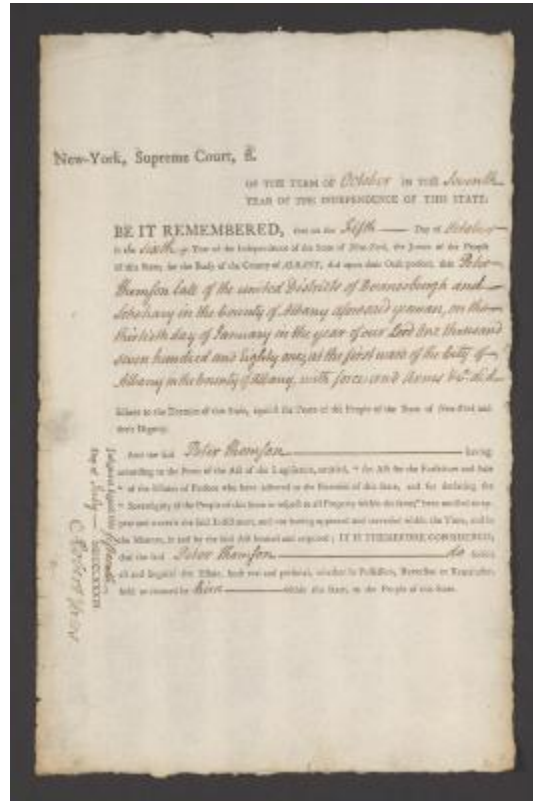 New-York, Supreme Court, ss.
OF THE TERM OF October IN THE Seventh
YEAR OF THE INDEPENDENCE OF THIS STATE:
BE IT REMEMBERED, that on the Fifth Day of October
in the sixth Year of the Independence of the State of New-York, the Jurors of the People
of this State, for the Body of the County of ALBANY, did upon their Oath present, that Peter
Thomson late of the united Districts of Duanesburgh and
Schohary in the County of Albany aforesaid yeoman, on the
thirtieth day of January in the year of our Lord One thousand
seven hundred and eighty one, at the first ward of the City of
Albany in the County of Albany, with force and Arms &c. did
adhere to the Enemies of this State, against the Peace of the People of the State of New-York and
their Dignity.
And the said Peter Thomson having
according to the Form of the Act of the Legislature, entitled, " An Act for the Forfeiture and Sale
" of the Estates of Persons who have adhered to the Enemies of this State, and for declaring the
" Sovereignty of the People of this State in respect to all Property within the same," been notified to ap-
pear and traverse the said Indictment, and not having appeared and traversed within the Time, and in
the Manner, in and by the said Act limited and required; IT IS THEREFORE CONSIDERED,
that the said Peter Thomson do forfeit
all and singular the Estate, both real and personal, whether in Possession, Reversion or Remainder,
held or claimed by him within this State, to the People of this State.
Judgment signed this fifteenth
Day of July MDCCLXXXIII